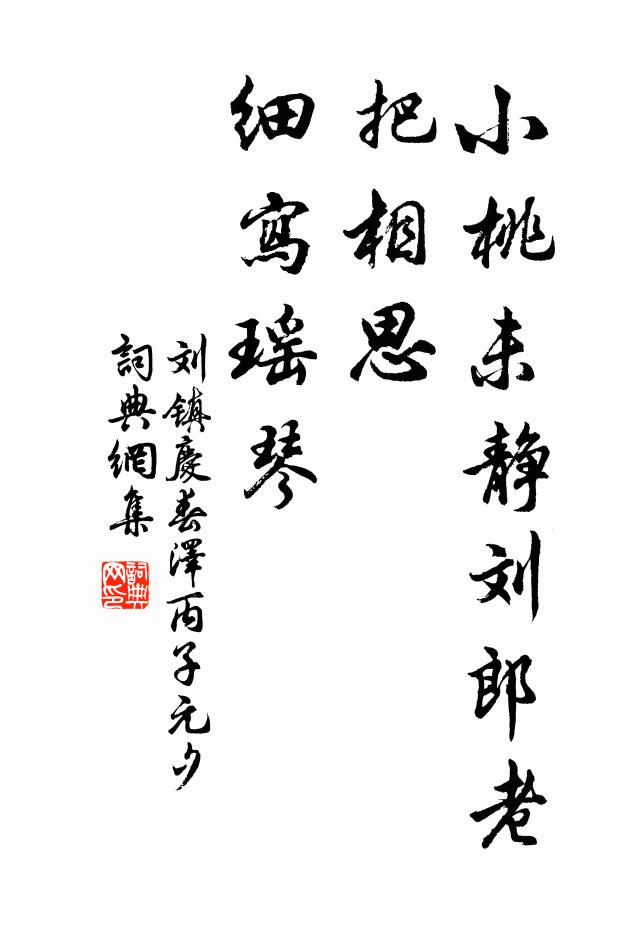 小桃未静刘郎老
把相思
细寫瑶琴
刘镇慶春澤丙子元夕
詞典網集
詞典网印